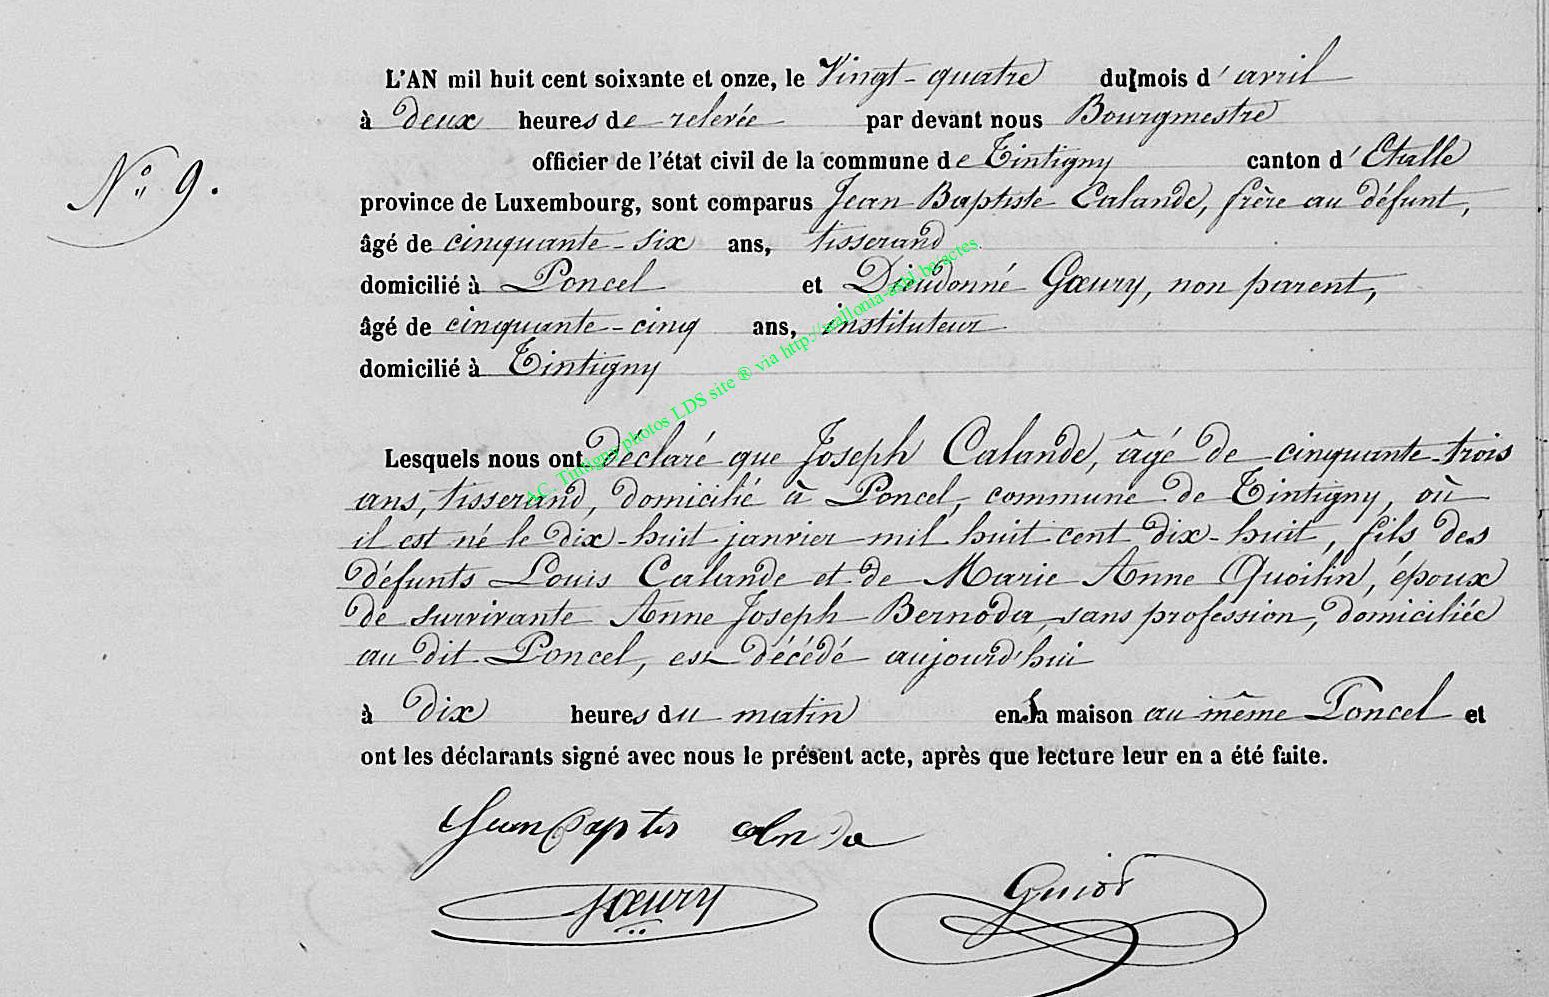 L'AN mil huit cent soixante et onze, le Vingt-quatre du mois d'avril
à deux heures de relevée par devant nous Bourgmestre
officier de l'état civil de la commune de Tintigny canton d'Etalle
N° 9.
province de Luxembourg, sont comparus Jean Baptiste Calande, frère au défunt,
âgé de cinquante-six ans, tisserand
domicilié à Poncel et Dieudonné Gœury, non parent,
âgé de cinquante-cinq ans, instituteur
domicilié à Tintigny
AC. Tintigny photos LDS site ® via http://wallonia-asbl.be-actes.
Lesquels nous ont déclaré que Joseph Calande, âgé de cinquante-trois
ans, tisserand, domicilié à Poncel, commune de Tintigny, où
il est né le dix-huit janvier mil huit cent dix-huit, fils des
défunts Louis Calande et de Marie Anne Quoilin, époux
de survivante Anne Joseph Bernoda, sans profession, domiciliée
au dit Poncel, est décédé aujourd'hui
à dix heures du matin en la maison au même Poncel et
ont les déclarants signé avec nous le présent acte, après que lecture leur en a été faite.
Gœury
Guiot